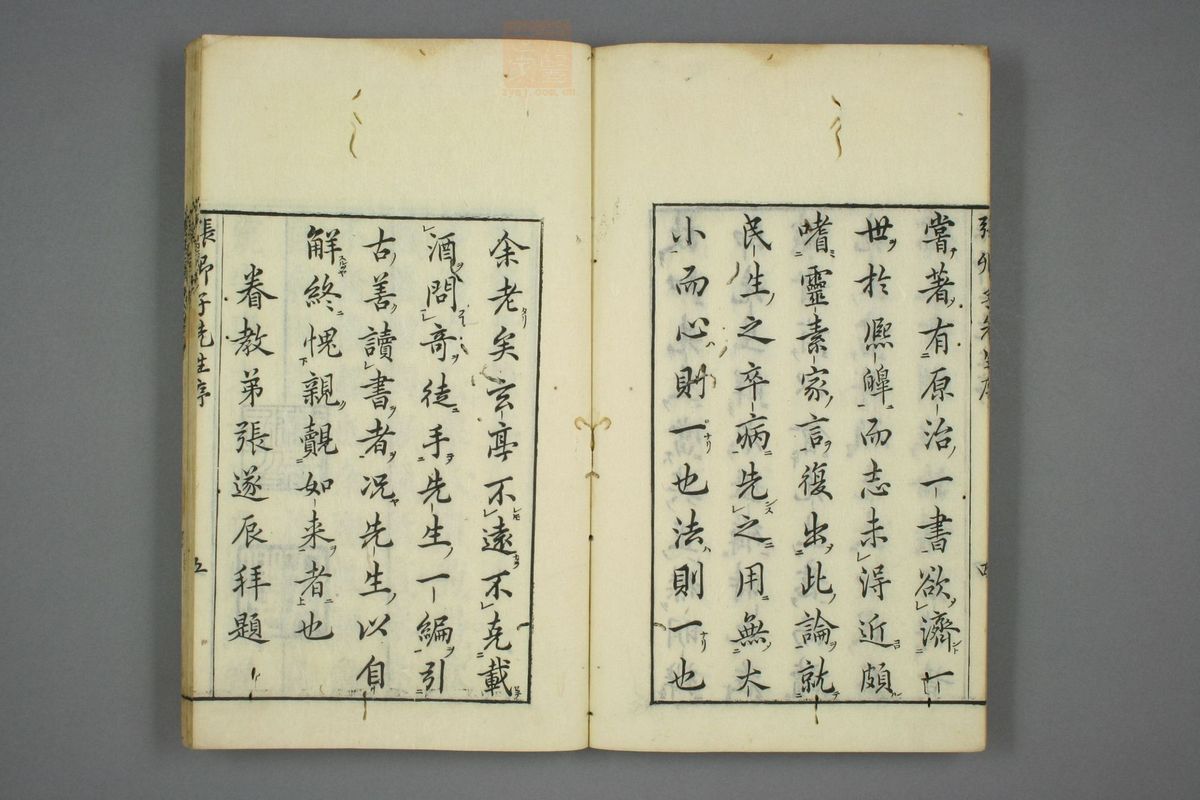 嘗著有原治一書欲濟一
世於熈皞而志未得近頗
嗜靈素家言復出此論就
民生之卒病先之用無大
小而心則一也法則一也
余老矣玄亭不遠不克載
酒問奇徒手先生一編引
古善讀書者况先生以自
解終愧親覿如来者也
眷教弟張遂辰拜題
張卿子先生序
五